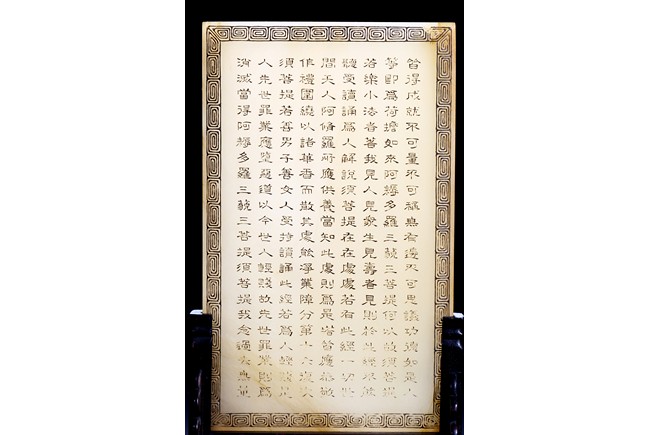 皆得成就不可量不可稱無有邊不可思議功德如是人
等即爲荷擔如來阿耨多羅三藐三菩提何以故須菩提
若樂小法者著我見人見眾生見壽者見則於此經不能
聽受讀誦爲人解說須菩提在在處處若有此經一切世
間天人阿修羅所應供養當知此處則爲是塔皆應恭敬
作禮圍繞以諸華香而散其處能淨業障分第十六復次
須菩提若善男子善女人受持讀誦此經若爲人輕賤是
人先世罪業應墮惡道以今世人輕賤故先世罪業則爲
消滅當得阿耨多羅三藐三菩提須菩提我念過去無量